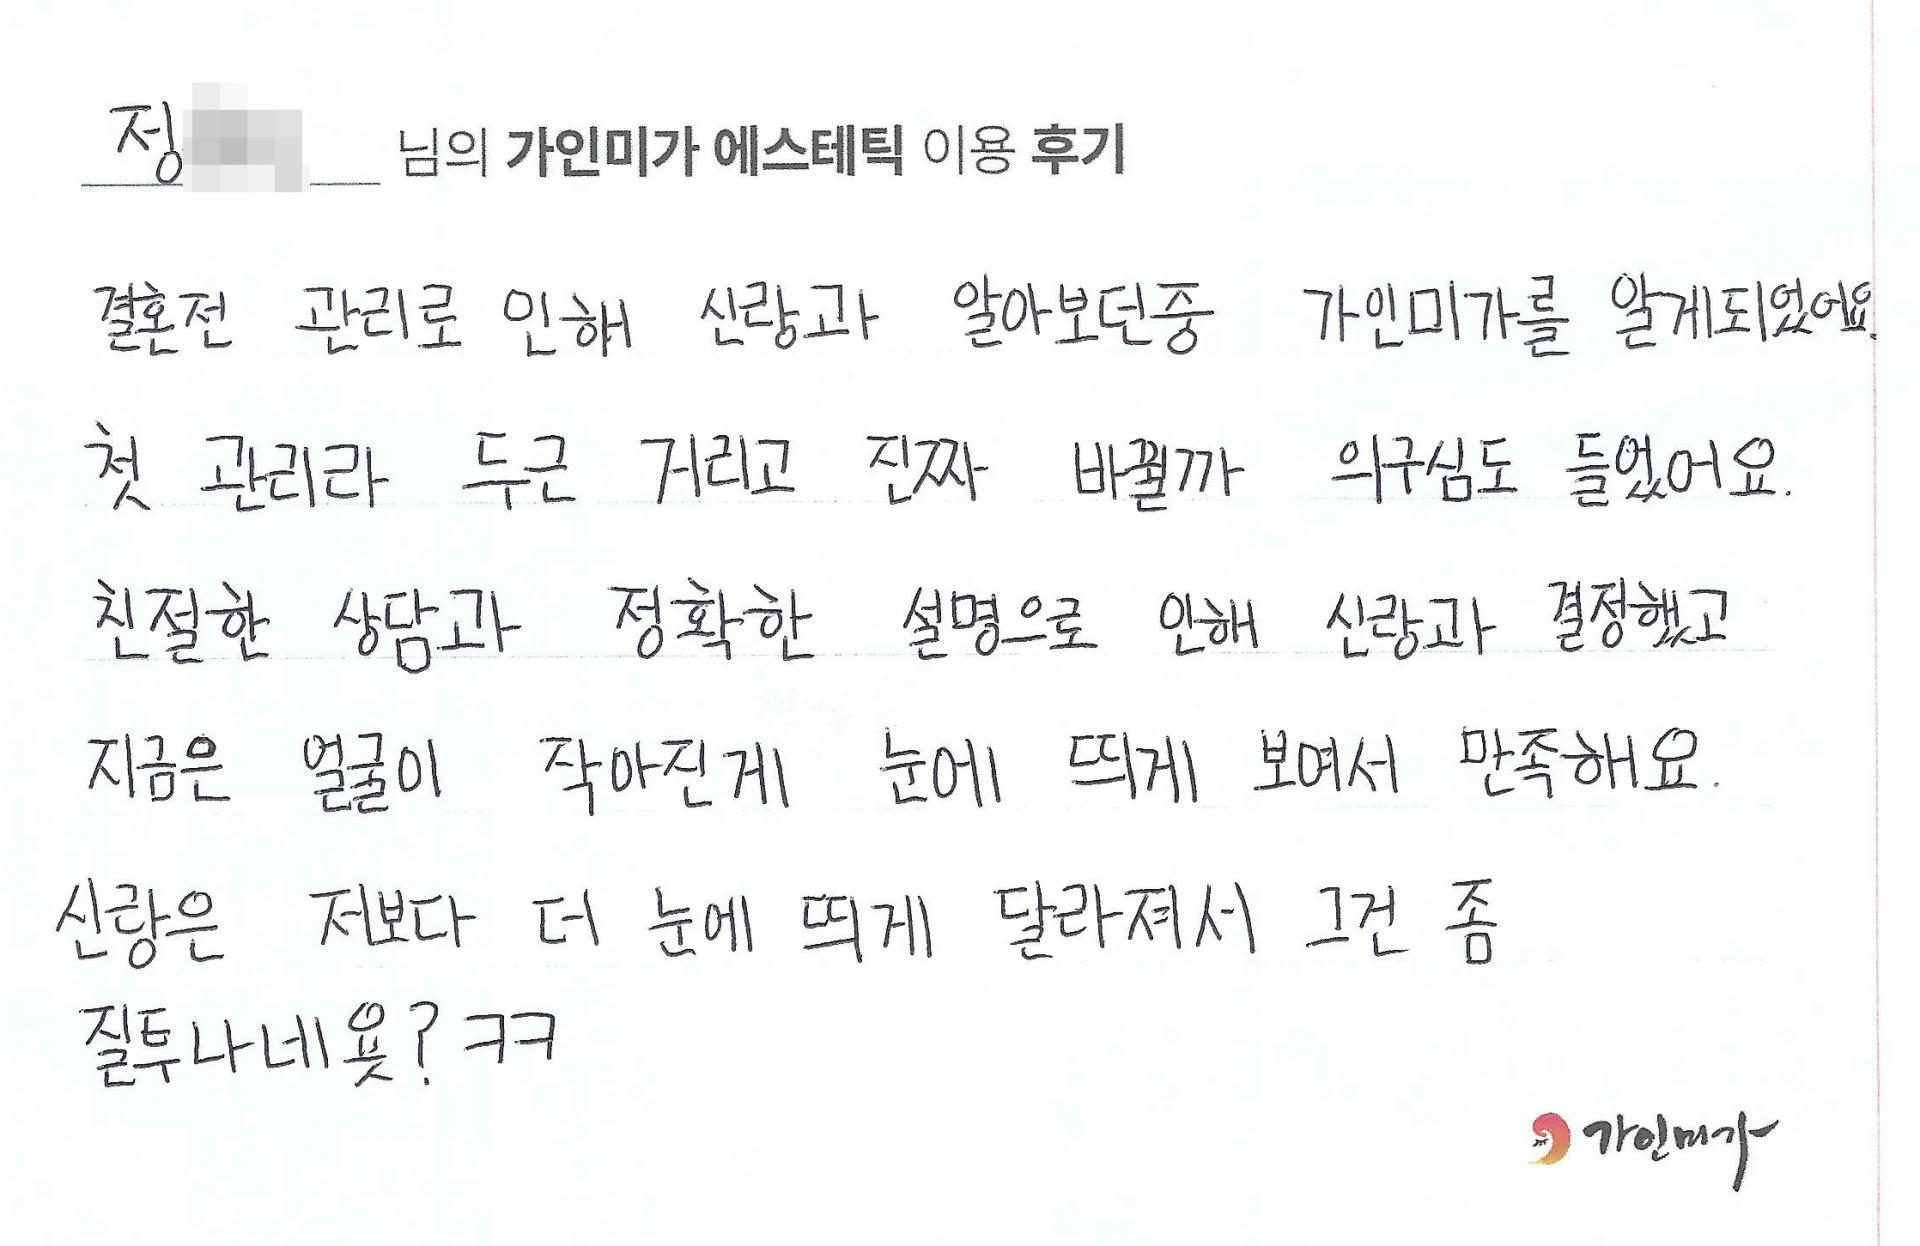 정 님의 가인미가 에스테틱 이용 후기
결혼전 관리로 인해 신랑과 알아보던중 가인미가를 알게되었어요.
첫 관리라 두근 거리고 진짜 바뀔까 의구심도 들었어요.
친절한 상담과 정확한 설명으로 인해 신랑과 결정했고
지금은 얼굴이 작아진게 눈에 띄게 보여서 만족해요.
신랑은 저보다 더 눈에 띄게 달라져서 그건 좀
질투나네욧? ㅋㅋ
가인미가